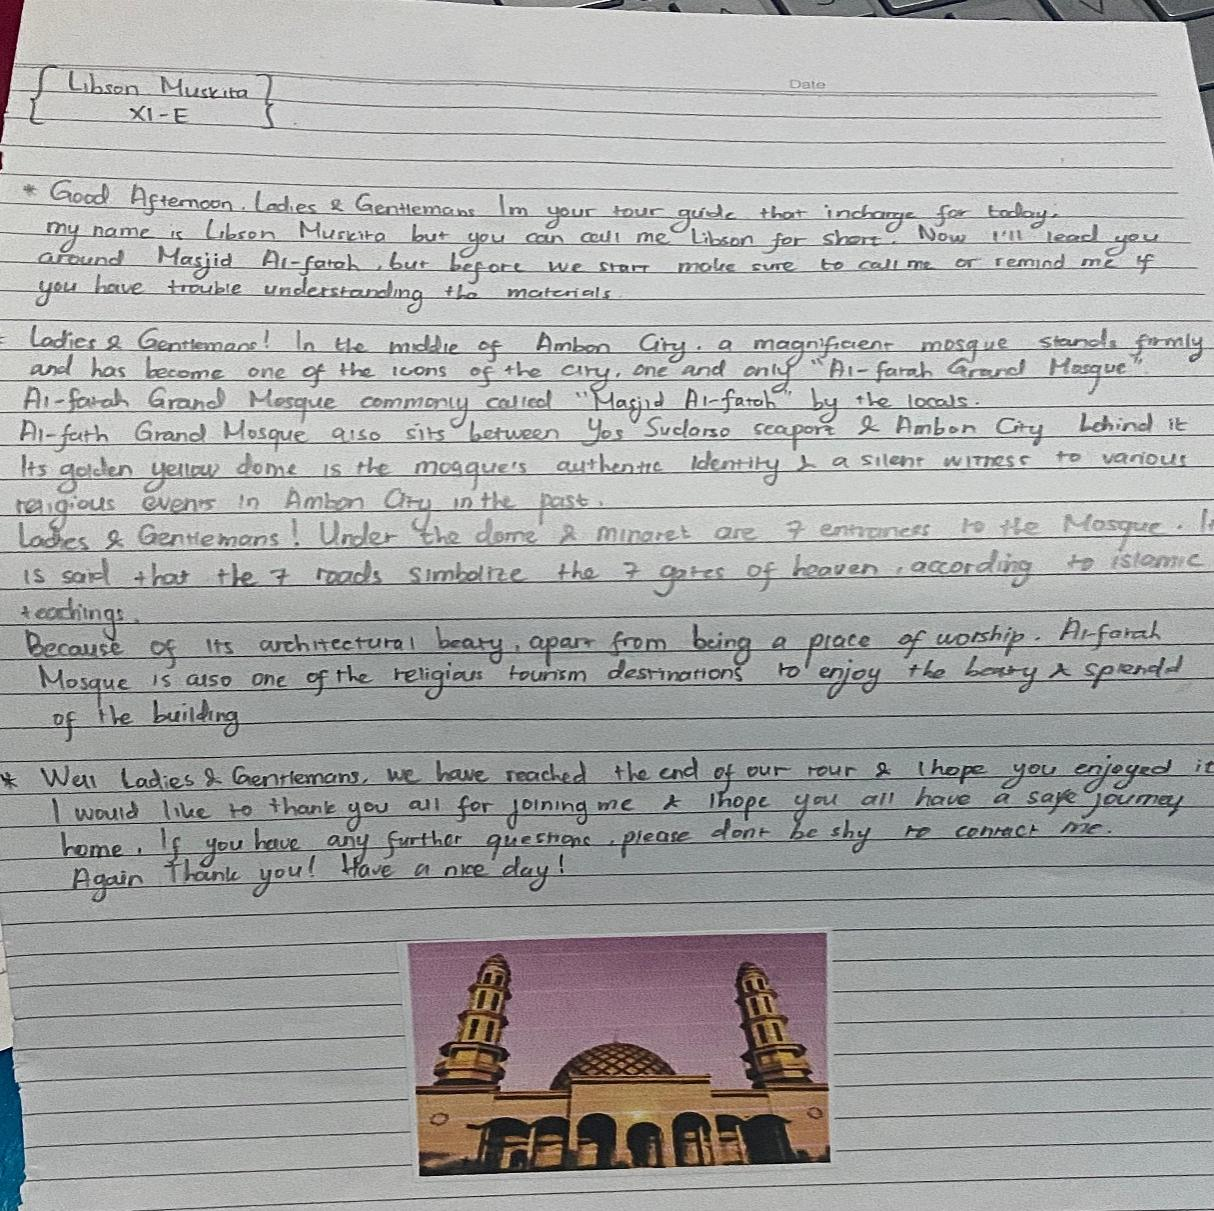 Libson Muskita
XI-E
Date
* Good Afternoon. Ladies & Gentlemans Im your tour guide that incharge for today.
my name is Libson Muskita but you can call me Libson for short. Now I'll lead you
around Masjid Al-fatah, but before we start make sure to call me or remind me if
you have trouble understanding the materials.
Ladies & Gentlemans! In the middle of Ambon City. a magnificent mosque stands firmly
and has become one of the icons of the city, one and only "Al-fatah Grand Mosque".
Al-fatah Grand Mosque commonly called "Masjid Al-fatah" by the locals.
Al-fath Grand Mosque also sits between Yos Sudarso seaport & Ambon City behind it
Its golden yellow dome is the mosque's authentic identity & a silent witness to various
religious events in Ambon City in the past.
Ladies & Gentlemans! Under the dome & minaret are 7 entrances to the Mosque. It
is said that the 7 roads simbolize the 7 gates of heaven, according to islamic
teachings.
Because of its architectural beaty, apart from being a place of worship. Al-fatah
Mosque is also one of the religious tourism destinations to enjoy the beaty & splendd
of the building
* Well Ladies & Gentlemans, we have reached the end of our tour & I hope you enjoyed it
I would like to thank you all for joining me & I hope you all have a safe journey
home. If you have any further questions, please dont be shy to contact me.
Again Thank you! Have a nice day!